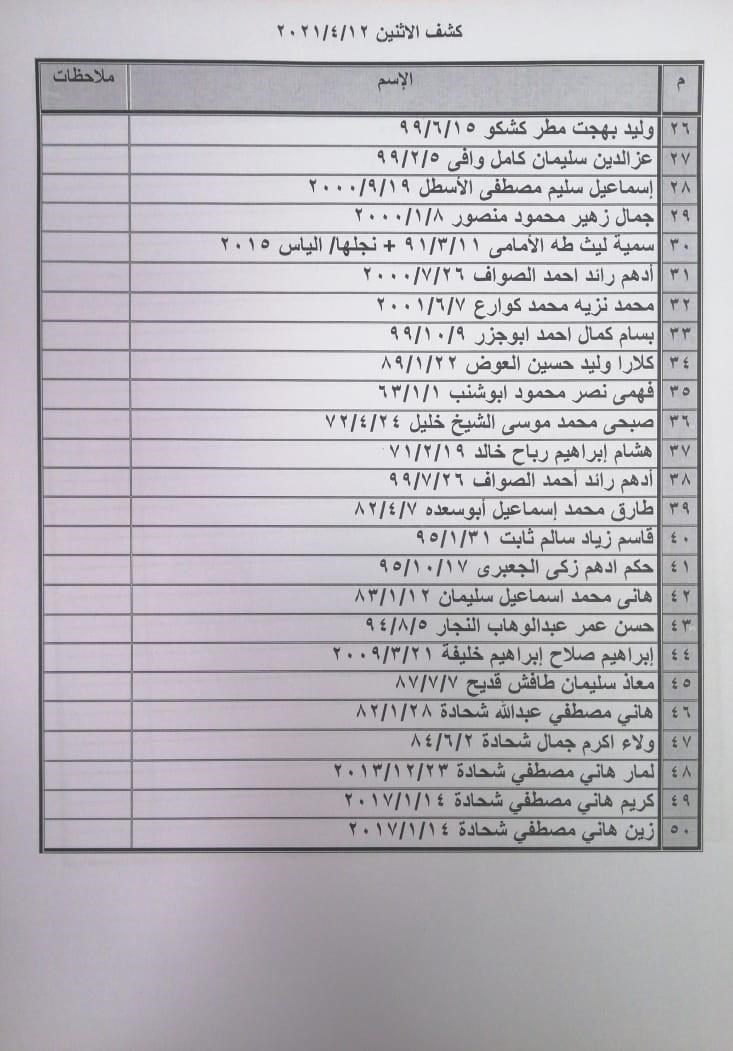 كشف الاثنين ٢٠٢١/٤/١٢
م الإسم ملاحظات
٢٦ وليد بهجت مطر كشكو ٩٩/٦/١٥
٢٧ عزالدين سليمان كامل وافى ٩٩/٢/٥
٢٨ إسماعيل سليم مصطفى الأسطل ٢٠٠٠/٩/١٩
٢٩ جمال زهير محمود منصور ٢٠٠٠/١/٨
٣٠ سمية ليث طه الأمامى ٩١/٣/١١ + نجلها/ الياس ٢٠١٥
٣١ أدهم رائد احمد الصواف ٢٠٠٠/٧/٢٦
٣٢ محمد نزيه محمد كوارع ٢٠٠١/٦/٧
٣٣ بسام كمال احمد ابوجزر ٩٩/١٠/٩
٣٤ كلارا وليد حسين العوض ٨٩/١/٢٢
٣٥ فهمى نصر محمود ابوشنب ٦٣/١/١
٣٦ صبحى محمد موسى الشيخ خليل ٧٢/٤/٢٤
٣٧ هشام إبراهيم رباح خالد ٧١/٢/١٩
٣٨ أدهم رائد أحمد الصواف ٩٩/٧/٢٦
٣٩ طارق محمد إسماعيل أبوسعده ٨٢/٤/٧
٤٠ قاسم زياد سالم ثابت ٩٥/١/٣١
٤١ حكم ادهم زكى الجعبرى ٩٥/١٠/١٧
٤٢ هانى محمد اسماعيل سليمان ٨٣/١/١٢
٤٣ حسن عمر عبدالوهاب النجار ٩٤/٨/٥
٤٤ إبراهيم صلاح إبراهيم خليفة ٢٠٠٩/٣/٢١
٤٥ معاذ سليمان طافش قديح ٨٧/٧/٧
٤٦ هاني مصطفي عبدالله شحادة ٨٢/١/٢٨
٤٧ ولاء اكرم جمال شحادة ٨٤/٦/٢
٤٨ لمار هاني مصطفي شحادة ٢٠١٣/١٢/٢٣
٤٩ كريم هاني مصطفي شحادة ٢٠١٧/١/١٤
٥٠ زين هاني مصطفي شحادة ٢٠١٧/١/١٤